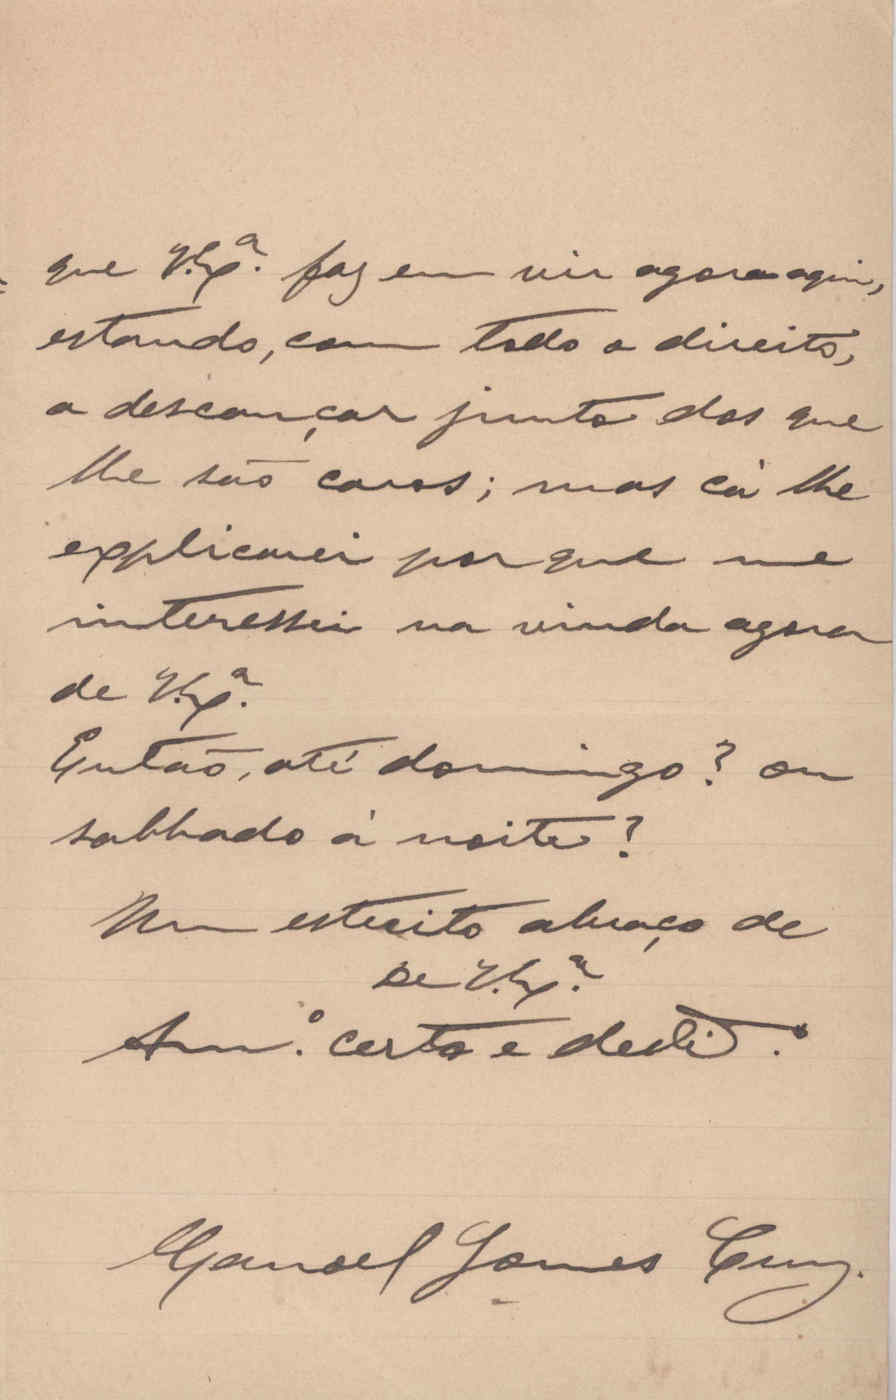 que V.Ex.ª faz em vir agora aqui,
estando, com todo o direito,
a descançar junto dos que
lhe são caros; mas cá lhe
explicarei porque me
interessei na vinda agora
de V.Ex.ª
Então, até domingo? ou
sabbado á noite?
Um estreito abraço de
De V.Ex.ª
Am.º certo e
Manoel Gomes Cruz.